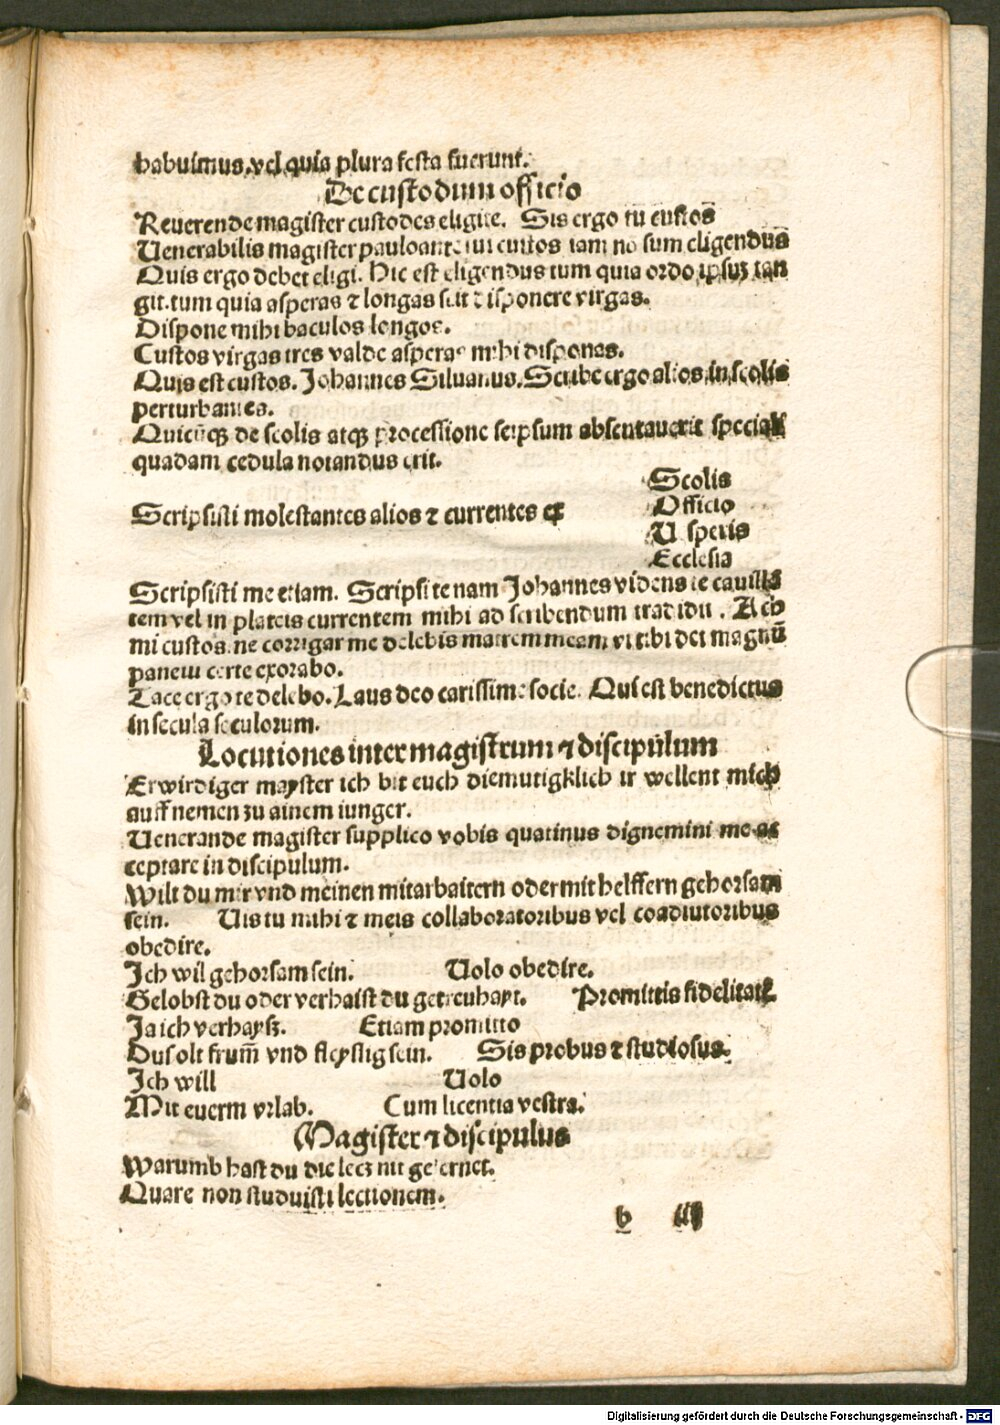 habuimus. vel quia plura festa fuerunt.
De custodum officio
Reuerende magister custodes eligite. Sis ergo tu custos
Uenerabilis magister paulo ante fui custos iam nō sum eligendus
Quis ergo debet eligi. Hic est eligendus tum quia ordo ipsuz tan
git. tum quia asperas ⁊ longas scit disponere virgas.
Dispone mihi baculos longos.
Custos virgas tres valde asperas mihi disponas.
Quis est custos. Johannes Siluanus. Scribe ergo alios in scolis
perturbantes.
Quicūqꝫ de scolis atqꝫ processione seipsum absentauerit speciali
quadam cedula notandus erit.
Scolis
Scripsisti molestantes alios ⁊ currentes ex Officio
Uesperis
Ecclesia
Scripsisti me etiam. Scripsi te nam Johannes videns te cauillā
tem vel in plateis currentem mihi ad scribendum tradidit. Ach
mi custos. ne corrigar me delebis matrem meam vt tibi det magnū
panem certe exorabo.
Tace ergo te delebo. Laus deo carissime socie. Qui est benedictus
in secula seculorum.
Locutiones inter magistrum ⁊ discipulum
Erwirdiger mayster ich bit euch diemutigklich ir wellent mich
auff nemen zu ainem iunger.
Uenerande magister supplico vobis quatinus dignemini me ac
ceptare in discipulum.
Wilt du mir vnd meinen mitarbaitern oder mit helffern gehorsam
sein. Uis tu mihi ⁊ meis collaboratoribus vel coadiutoribus
obedire.
Ich wil gehorsam sein. Uolo obedire.
Gelobst du oder verhaist du getreuhayt. Promittis fidelitatē
Ja ich verhaysz. Etiam promitto
Du solt frum̄ vnd fleyssig sein. Sis probus ⁊ studiosus.
Ich will Uolo
Mit euerm vrlab. Cum licentia vestra.
Magister ⁊ discipulus
Warumb hast du die lecz nit gelernet.
Quare non studuisti lectionem.
b iiij
Digitalisierung gefördert durch die Deutsche Forschungsgemeinschaft - DFG